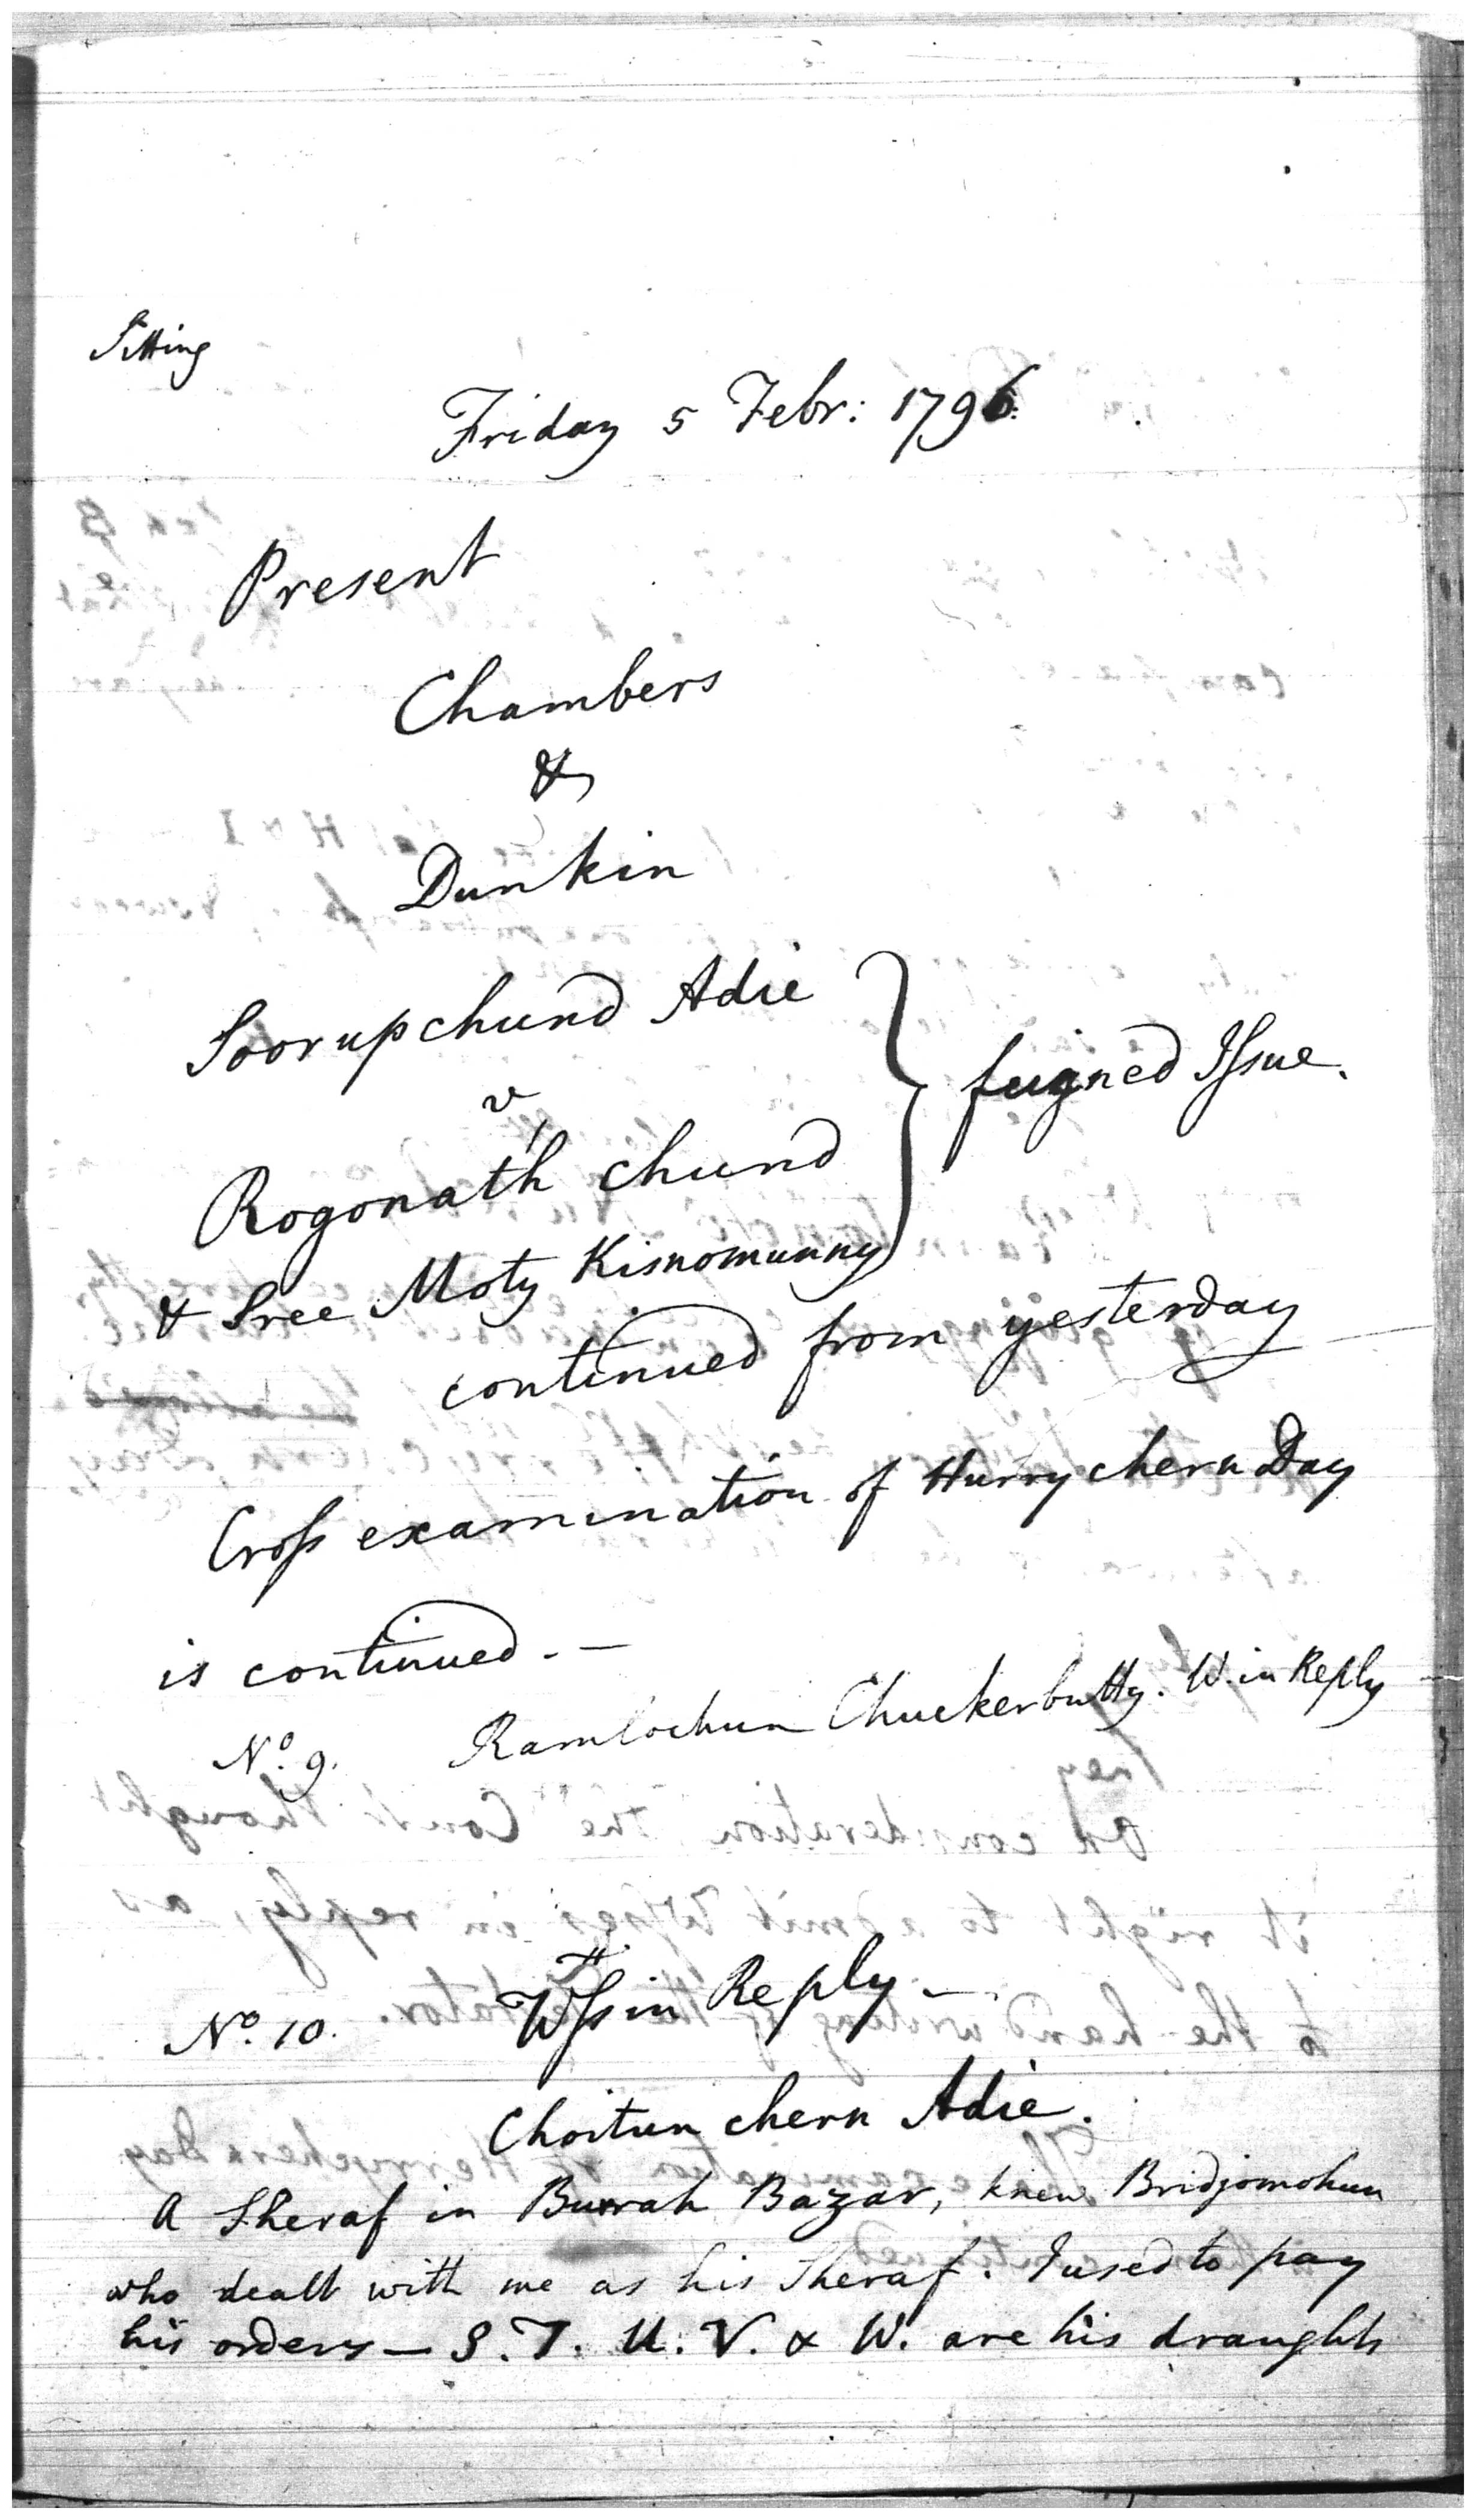 Sitting
Friday 5 Febr: 1796.
Present
Chambers
&
Dunkin
Soorupchund Adie
v
Rogonath Chund
& Sree Moty Kisnomunny
feigned Issue.
continued from yesterday
Cross examination of Hurrychern Day
is continued. —
No. 9. Ramlochun Chuckerbutty. W. in Reply
No. 10. Wss in Reply —
Choitun chern Adie.
A Sheraf in Burrah Bazar, knew Bridjomohun
who dealt with me as his Sheraf. I used to pay
his orders — S. T. U. V. & W. are his draughts